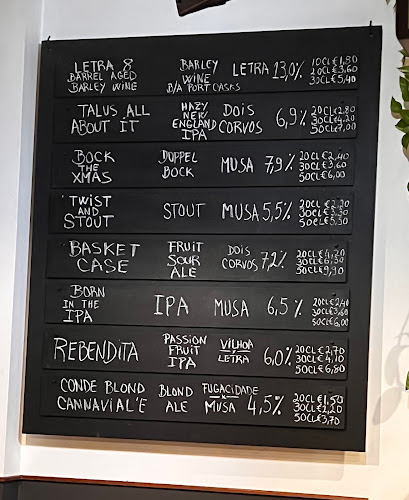 LETRA 8 BARLEY LETRA 13,0% 10CL €1,80
BARREL AGED WINE 20CL €3,60
BARLEY WINE B/A PORT CASKS 30CL €5,40
TALUS ALL HAZY DOIS 6,9% 20CL €2,80
ABOUT IT NEW CORVOS 30CL €4,20
ENGLAND 50CL €7,00
IPA
BOCK DOPPEL MUSA 7,9% 20CL €2,40
THE BOCK 30CL €3,60
XMAS 50CL €6,00
TWIST STOUT MUSA 5,5% 20CL €2,20
AND 30CL €3,30
STOUT 50CL €5,50
BASKET FRUIT DOIS 7,2% 20CL €4,20
CASE SOUR CORVOS 30CL
ALE 50CL €9,90
BORN IPA MUSA 6,5% 20CL €2,40
IN THE 30CL €3,60
IPA 50CL €6,00
REBENDITA PASSION VILHOA 6,0% 20CL €2,70
FRUIT LETRA 30CL €4,10
IPA 50CL €6,80
CONDE BLOND BLOND FUGACIDADE 4,5% 20CL €1,50
CANNAVIAL'E ALE x 30CL €2,20
MUSA 50CL €3,70